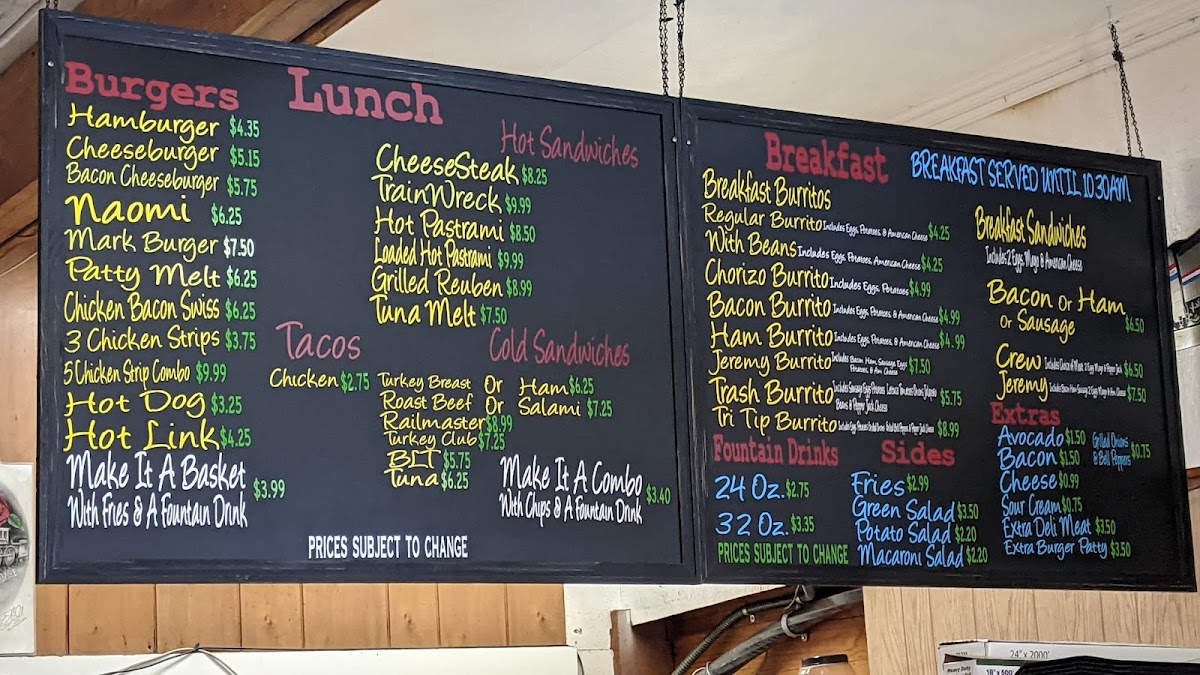 Burgers
Hamburger $4.35
Cheeseburger $5.15
Bacon Cheeseburger $5.75
Naomi $6.25
Mark Burger $7.50
Patty Melt $6.25
Chicken Bacon Swiss $6.25
3 Chicken Strips $3.75
5 Chicken Strip Combo $9.99
Hot Dog $3.25
Hot Link $4.25
Make It A Basket
With Fries & A Fountain Drink $3.99
Lunch
Hot Sandwiches
CheeseSteak $8.25
TrainWreck $9.99
Hot Pastrami $8.50
Loaded Hot Pastrami $9.99
Grilled Reuben $8.99
Tuna Melt $7.50
Tacos
Chicken $2.75
Cold Sandwiches
Turkey Breast Or Ham $6.25
Roast Beef Or Salami $7.25
Railmaster $8.99
Turkey Club $7.25
BLT $5.75
Tuna $6.25
Make It A Combo
With Chips & A Fountain Drink $3.40
PRICES SUBJECT TO CHANGE
Breakfast
BREAKFAST SERVED UNTIL 10:30AM
Breakfast Burritos
Regular Burrito Includes Eggs, Potatoes, & American Cheese $4.25
With Beans Includes Eggs, Potatoes, American Cheese $4.25
Chorizo Burrito Includes Eggs, Potatoes $4.99
Bacon Burrito Includes Eggs, Potatoes, & American Cheese $4.99
Ham Burrito Includes Eggs, Potatoes, & American Cheese $4.99
Jeremy Burrito Includes Bacon, Ham, Sausage, Eggs
Potatoes, & Am. Cheese $7.50
Trash Burrito Includes Sausage Eggs Potatoes Lettuce Tomatoes Onions Jalapeno
Beans & Pepper Jack Cheese $5.75
Tri Tip Burrito Includes Eggs Potatoes Grilled Onions Grilled Bell Peppers & Pepper Jack Cheese $8.99
Breakfast Sandwiches
Includes 2 Eggs, Mayo & American Cheese
Bacon Or Ham
Or Sausage $6.50
Crew Includes Choice of Meat, 2 Eggs Mayo & Pepper Jack $6.50
Jeremy Includes Bacon Ham Sausage 2 Eggs Mayo & Am Cheese $7.50
Fountain Drinks
24 Oz. $2.75
32 Oz. $3.35
PRICES SUBJECT TO CHANGE
Sides
Fries $2.99
Green Salad $3.50
Potato Salad $2.20
Macaroni Salad $2.20
Extras
Avocado $1.50
Bacon $1.50
Cheese $0.99
Sour Cream $0.75
Extra Deli Meat $3.50
Extra Burger Patty $3.50
Grilled Onions
& Bell Peppers $0.75
24" x 2000'